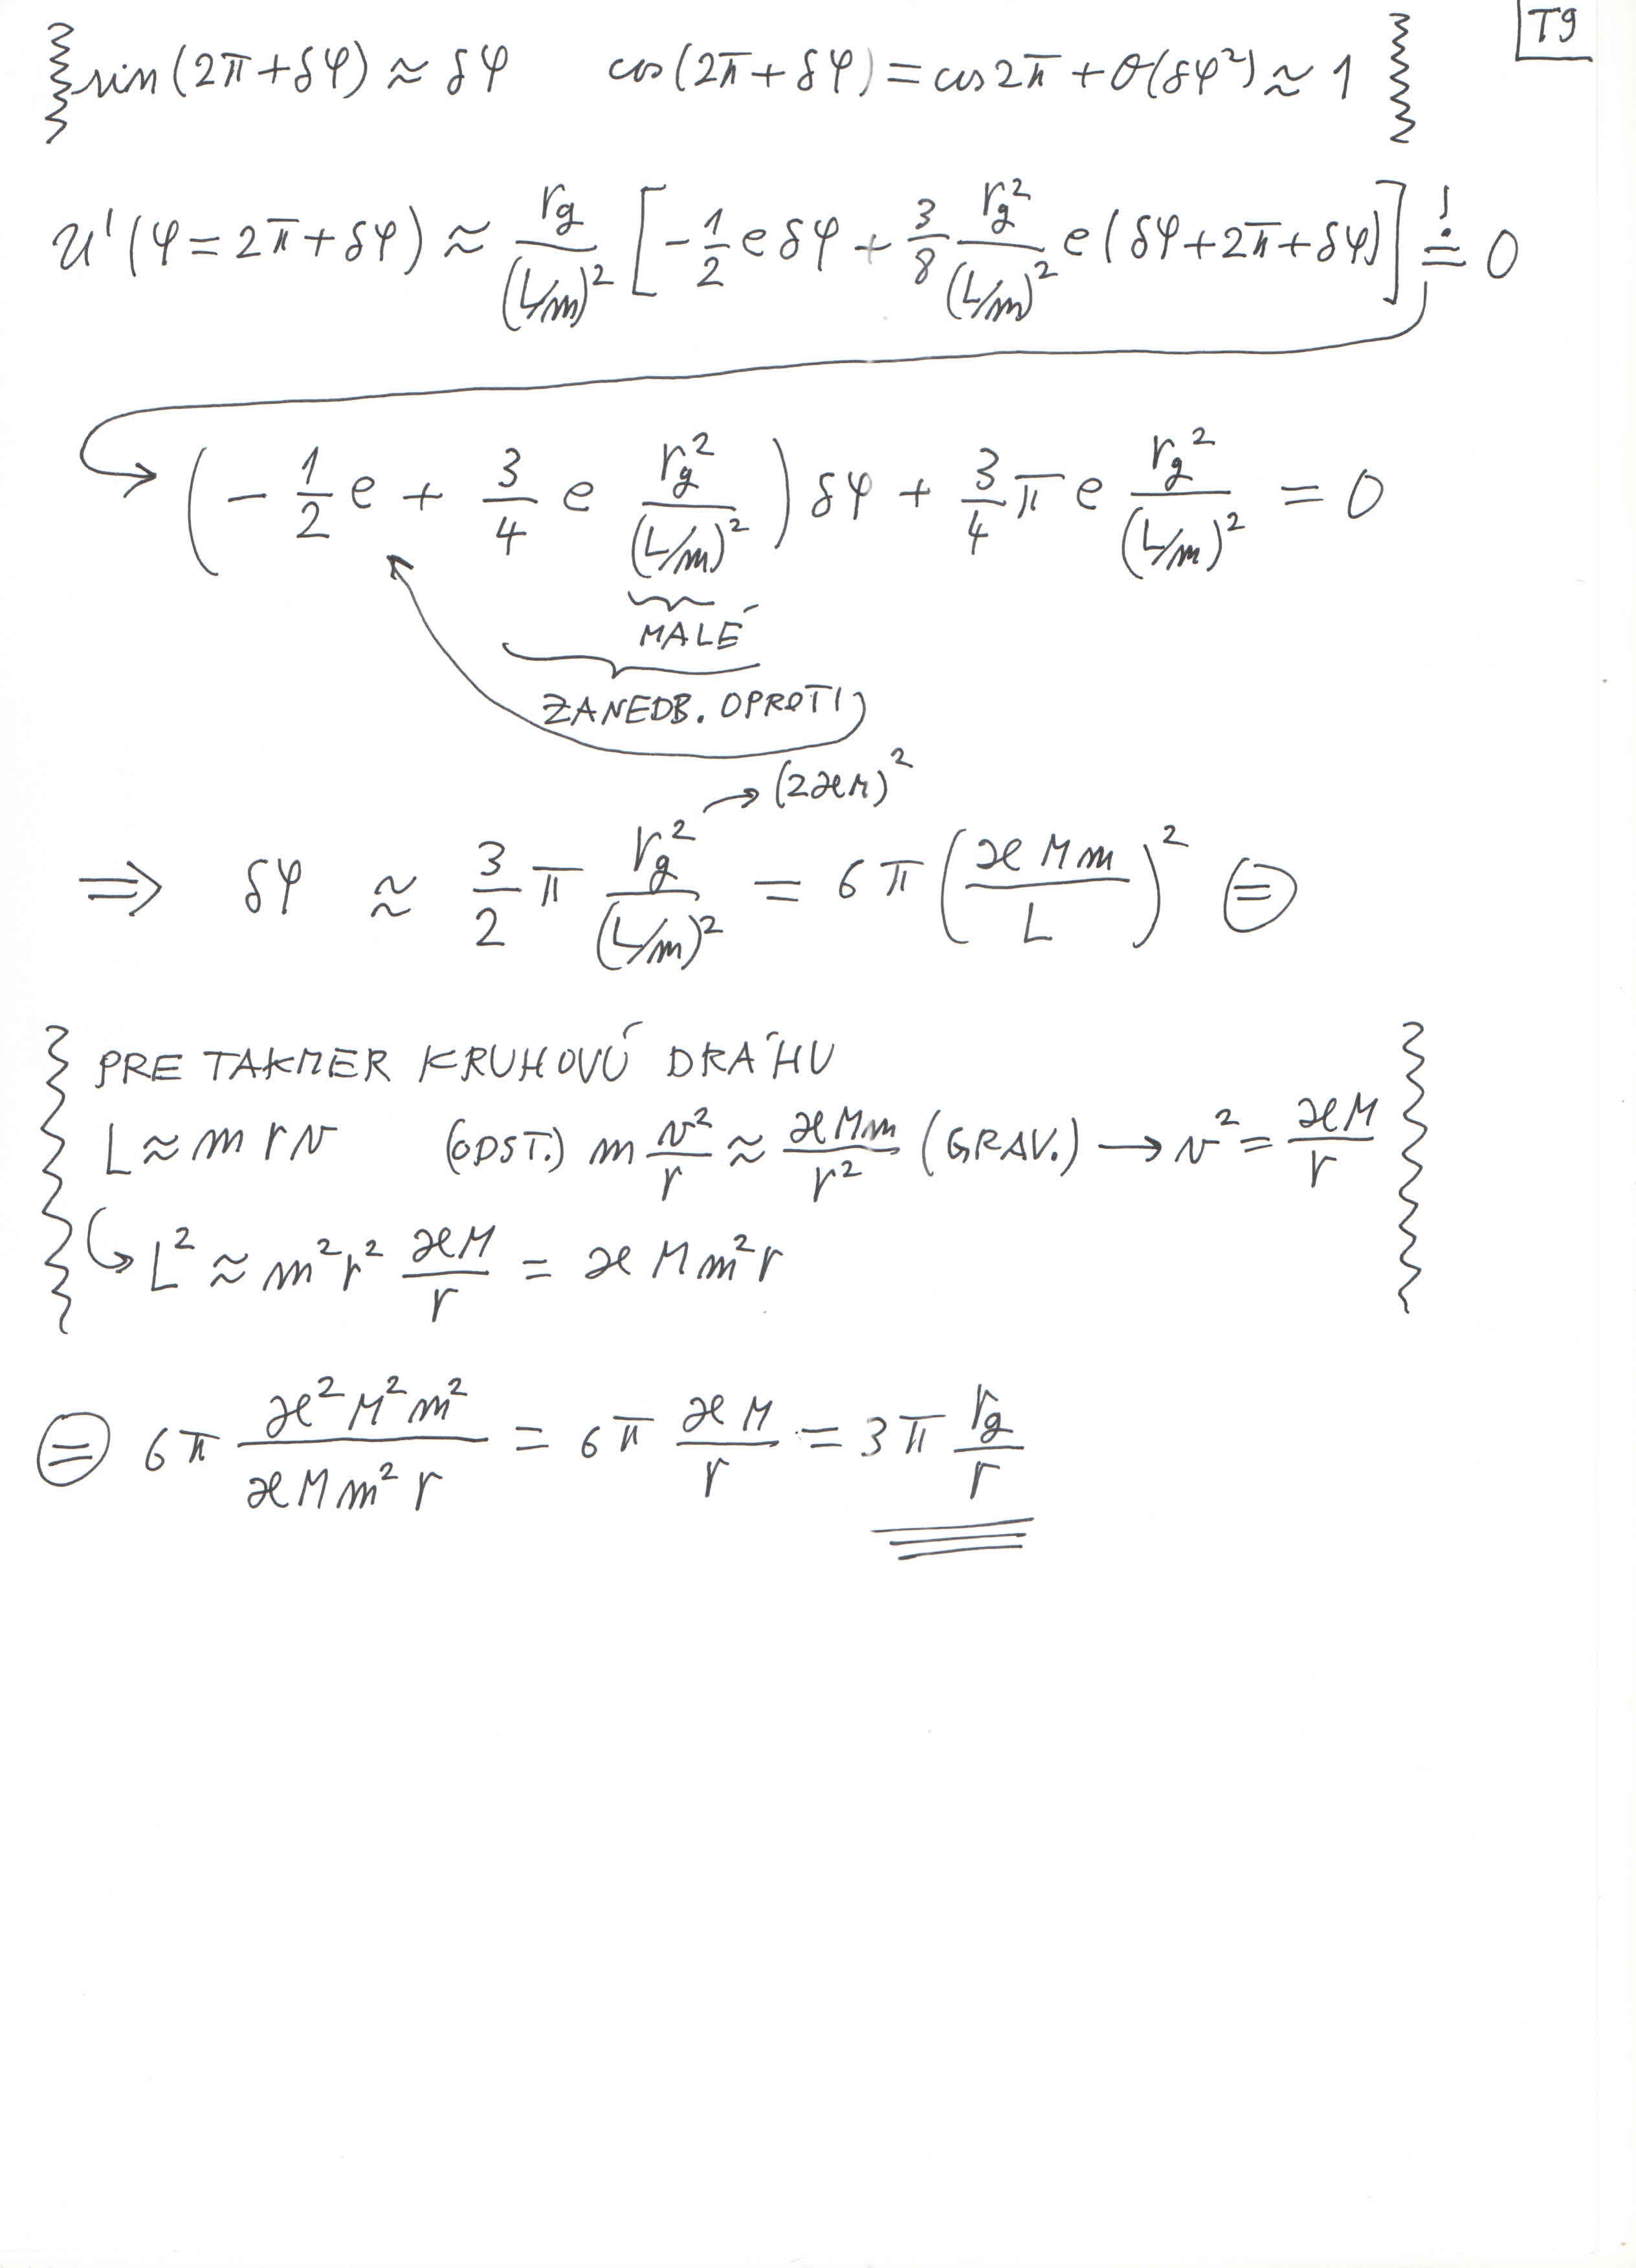 T9
sin(2π+δφ) ≈ δφ cos(2π+δφ) = cos 2π + O(δφ²) ≈ 1
u'(φ=2π+δφ) ≈ r_g/(L/m)² [-1/2 e δφ + 3/8 r_g²/(L/m)² e(δφ+2π+δφ)] =! 0
(-1/2 e + 3/4 e r_g²/(L/m)²) δφ + 3/4 π e r_g²/(L/m)² = 0
MALÉ
ZANEDB. OPROTI
(2ϰM)²
⇒ δφ ≈ 3/2 π r_g²/(L/m)² = 6π (ϰMm/L)² ⊜
PRE TAKMER KRUHOVÚ DRÁHU
L ≈ m r v (ODST.) m v²/r ≈ ϰMm/r² (GRAV.) → v² = ϰM/r
L² ≈ m²r² ϰM/r = ϰMm²r
⊜ 6π ϰ²M²m²/ϰMm²r = 6π ϰM/r = 3π r_g/r